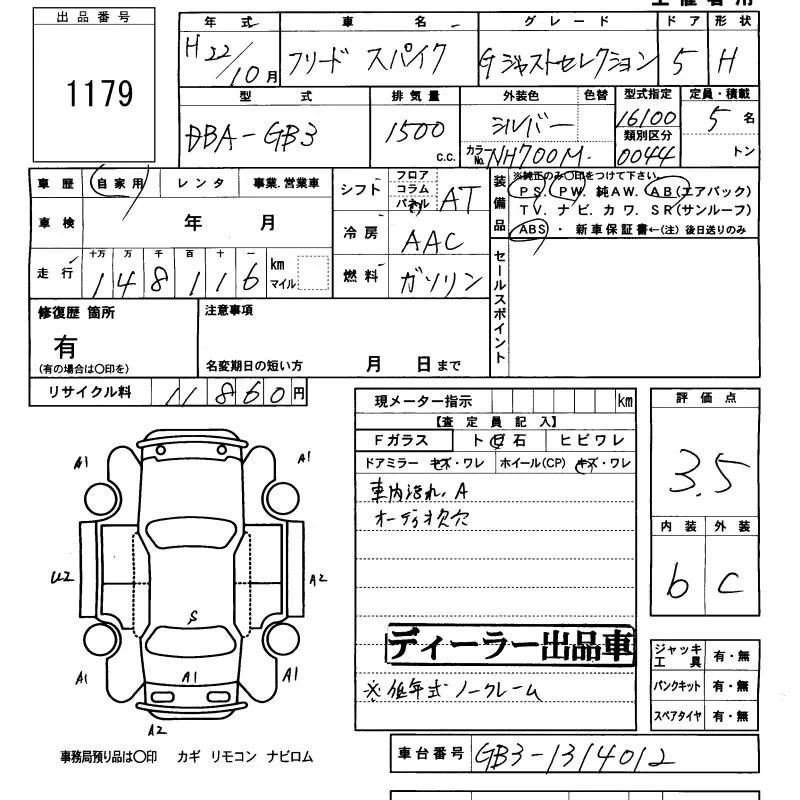 出品番号
1179
年式 車名 グレード ドア 形状
H22/10月 フリード スパイク Gジャストセレクション 5 H
型式 排気量 外装色 色替 型式指定 定員・積載
DBA-GB3 1500 c.c. シルバー 16100 5 名
カラーNo. NH700M 類別区分 0044 トン
車歴 自家用 レンタ 事業.営業車
車検 年 月
走行 十万 万 千 百 十 一
148116 km マイル
シフト フロア コラム パネル AT
冷房 AAC
燃料 ガソリン
装備品
※純正のみ○印をつけて下さい。
PS. PW. 純AW. AB(エアバック)
TV. ナビ. カワ. SR(サンルーフ)
ABS ・ 新車保証書←(注) 後日送りのみ
セールスポイント
修復歴 箇所
有
(有の場合は○印を)
注意事項
名変期日の短い方 月 日まで
リサイクル料 11860円
現メーター指示 km
【査定員記入】
Fガラス ト石 ヒビワレ
ドアミラー キズ・ワレ ホイール(CP) キズ・ワレ
車内汚れ.A
オーディオ欠穴
ディーラー出品車
※低年式 ノークレーム
評価点
3.5
内装 外装
b c
A1 A1
U2 A2
S
A1 A1 A1
A2
ジャッキ工具 有・無
パンクキット 有・無
スペアタイヤ 有・無
事務局預り品は○印 カギ リモコン ナビロム
車台番号 GB3-1314012